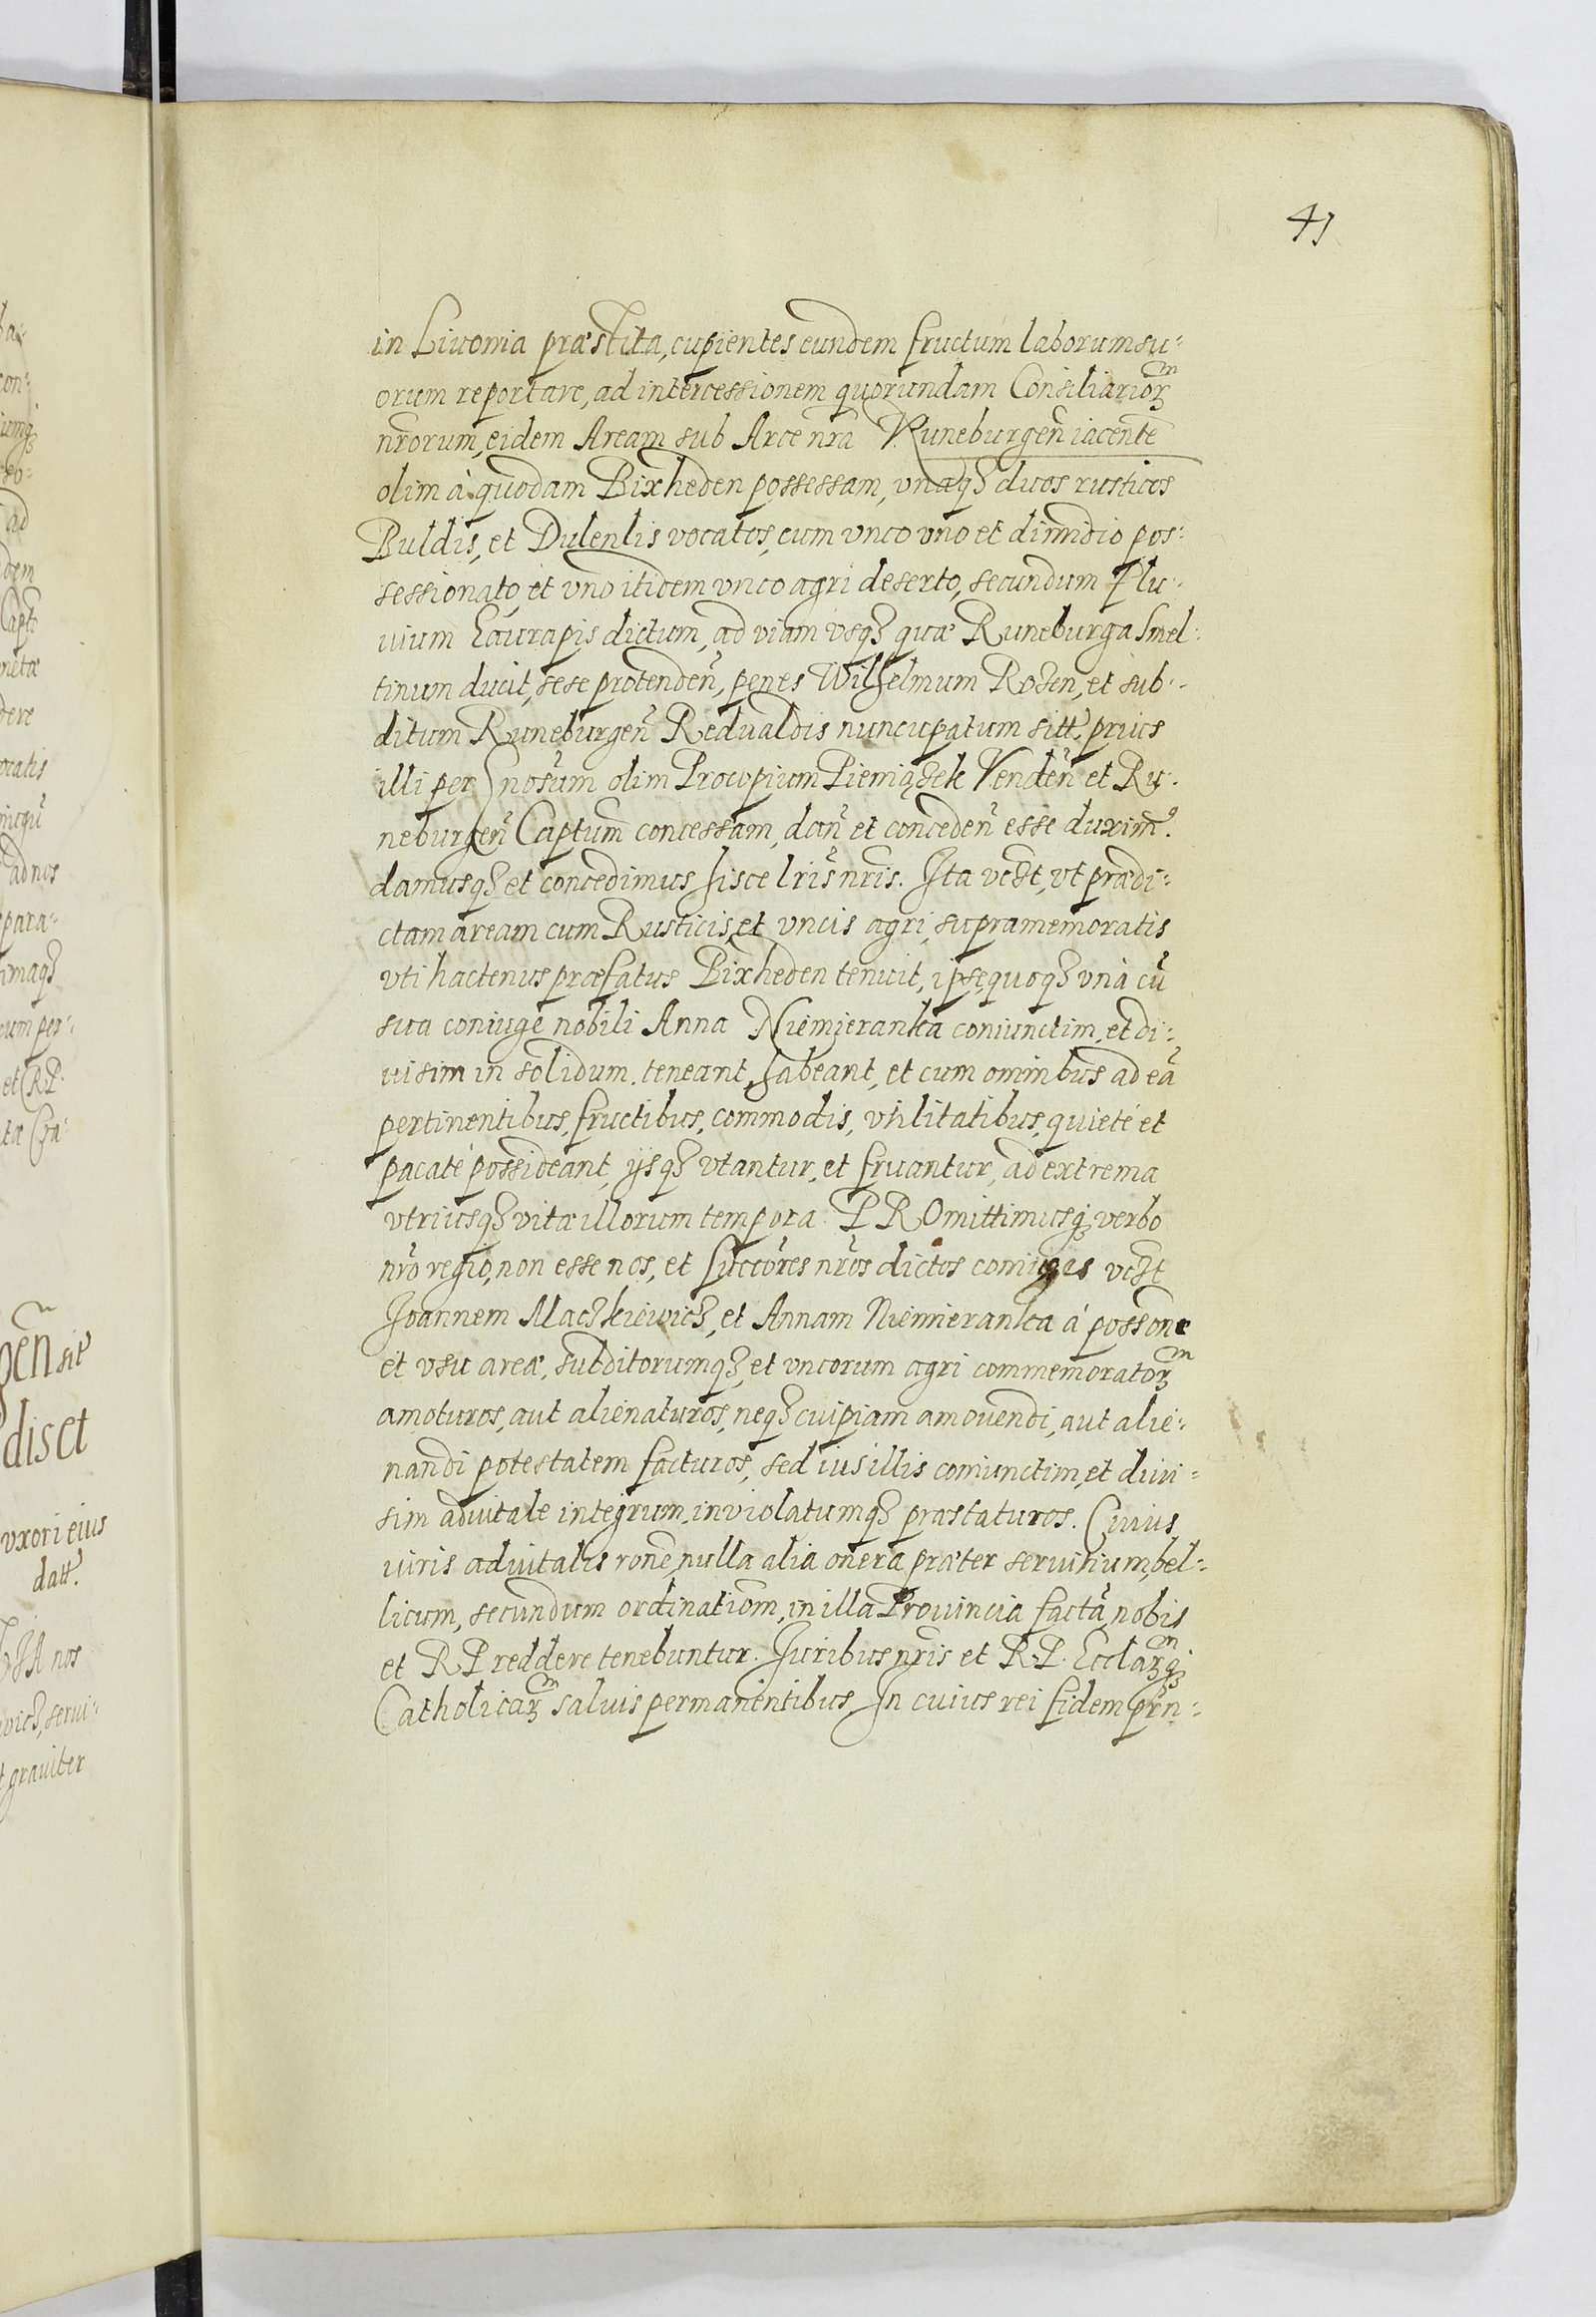 41
in Liuonia præstita, cupientes eundem fructum laborum su-
orum reportare, ad intercessionem quorundam Consiliarior̃m
nr̃orum, eidem Aream sub Arce nr̃a Runeburgeñ iacente
olim à quodam Bixheden possessam, vnaqȝ duos rusticos
Buldis, et Dulenlis vocatos, cum vnco vno et dimidio pos-
sessionato, et vno itidem vnco agri deserto, secundum Flu-
uium Eaurapis dictum, ad viam vsqȝ quæ Runeburga Smel-
tinum ducit, sese protendeñ, penes Wilhelmum Rosen, et sub-
ditum Runeburgeñ Redualdis nuncupatum sitt. prius
illi per Gnosum olim Procopium Pieniązek Vendeñ et Ru-
neburgeñ Captum concessam, dañ et concedeñ esse duxim9.
damusqȝ et concedimus hisce lr̃is nr̃is. Ita vczt, vt prædi-
ctam aream cum Rusticis, et vncis agri, supramemoratis
vti hactenus præfatus Bixheden tenuit, ipse quoqȝ vnà cũ
sua coniuge nobili Anna Niemieranka coniunctim, et di-
uisim in solidum. teneant, habeant, et cum omnibus ad eã
pertinentibus, fructibus, commodis, vtilitatibus, quietè et
pacatè possideant, ijsqȝ vtantur, et fruantur, ad extrema
vtriusqȝ vitæ illorum tempora. PROmittimusqȝ verbo
nr̃o regio, non esse nos, et succores nr̃os dictos coniuges vczt
Joannem Maczkiewicz, et Annam Niemieranka à possone
et vsu areæ, subditorumqȝ, et vncorum agri commemorator̃m
amoturos, aut alienaturos, neqȝ cuipiam amouendi, aut alie-
nandi potestatem facturos, sed ius illis coniunctim, et diui-
sim aduitale integrum, inviolatumqȝ præstaturos. Cuius
iuris aduitalis rone, nulla alia onera præter seruitium bel-
licum, secundum ordinatiom, in illa Prouincia factã nobis
et RP reddere tenebuntur. Juribus nr̃is et R.P. Ecclar̃mqȝ
Catholicar̃m saluis permanentibus. In cuius rei fidem pr̃n-